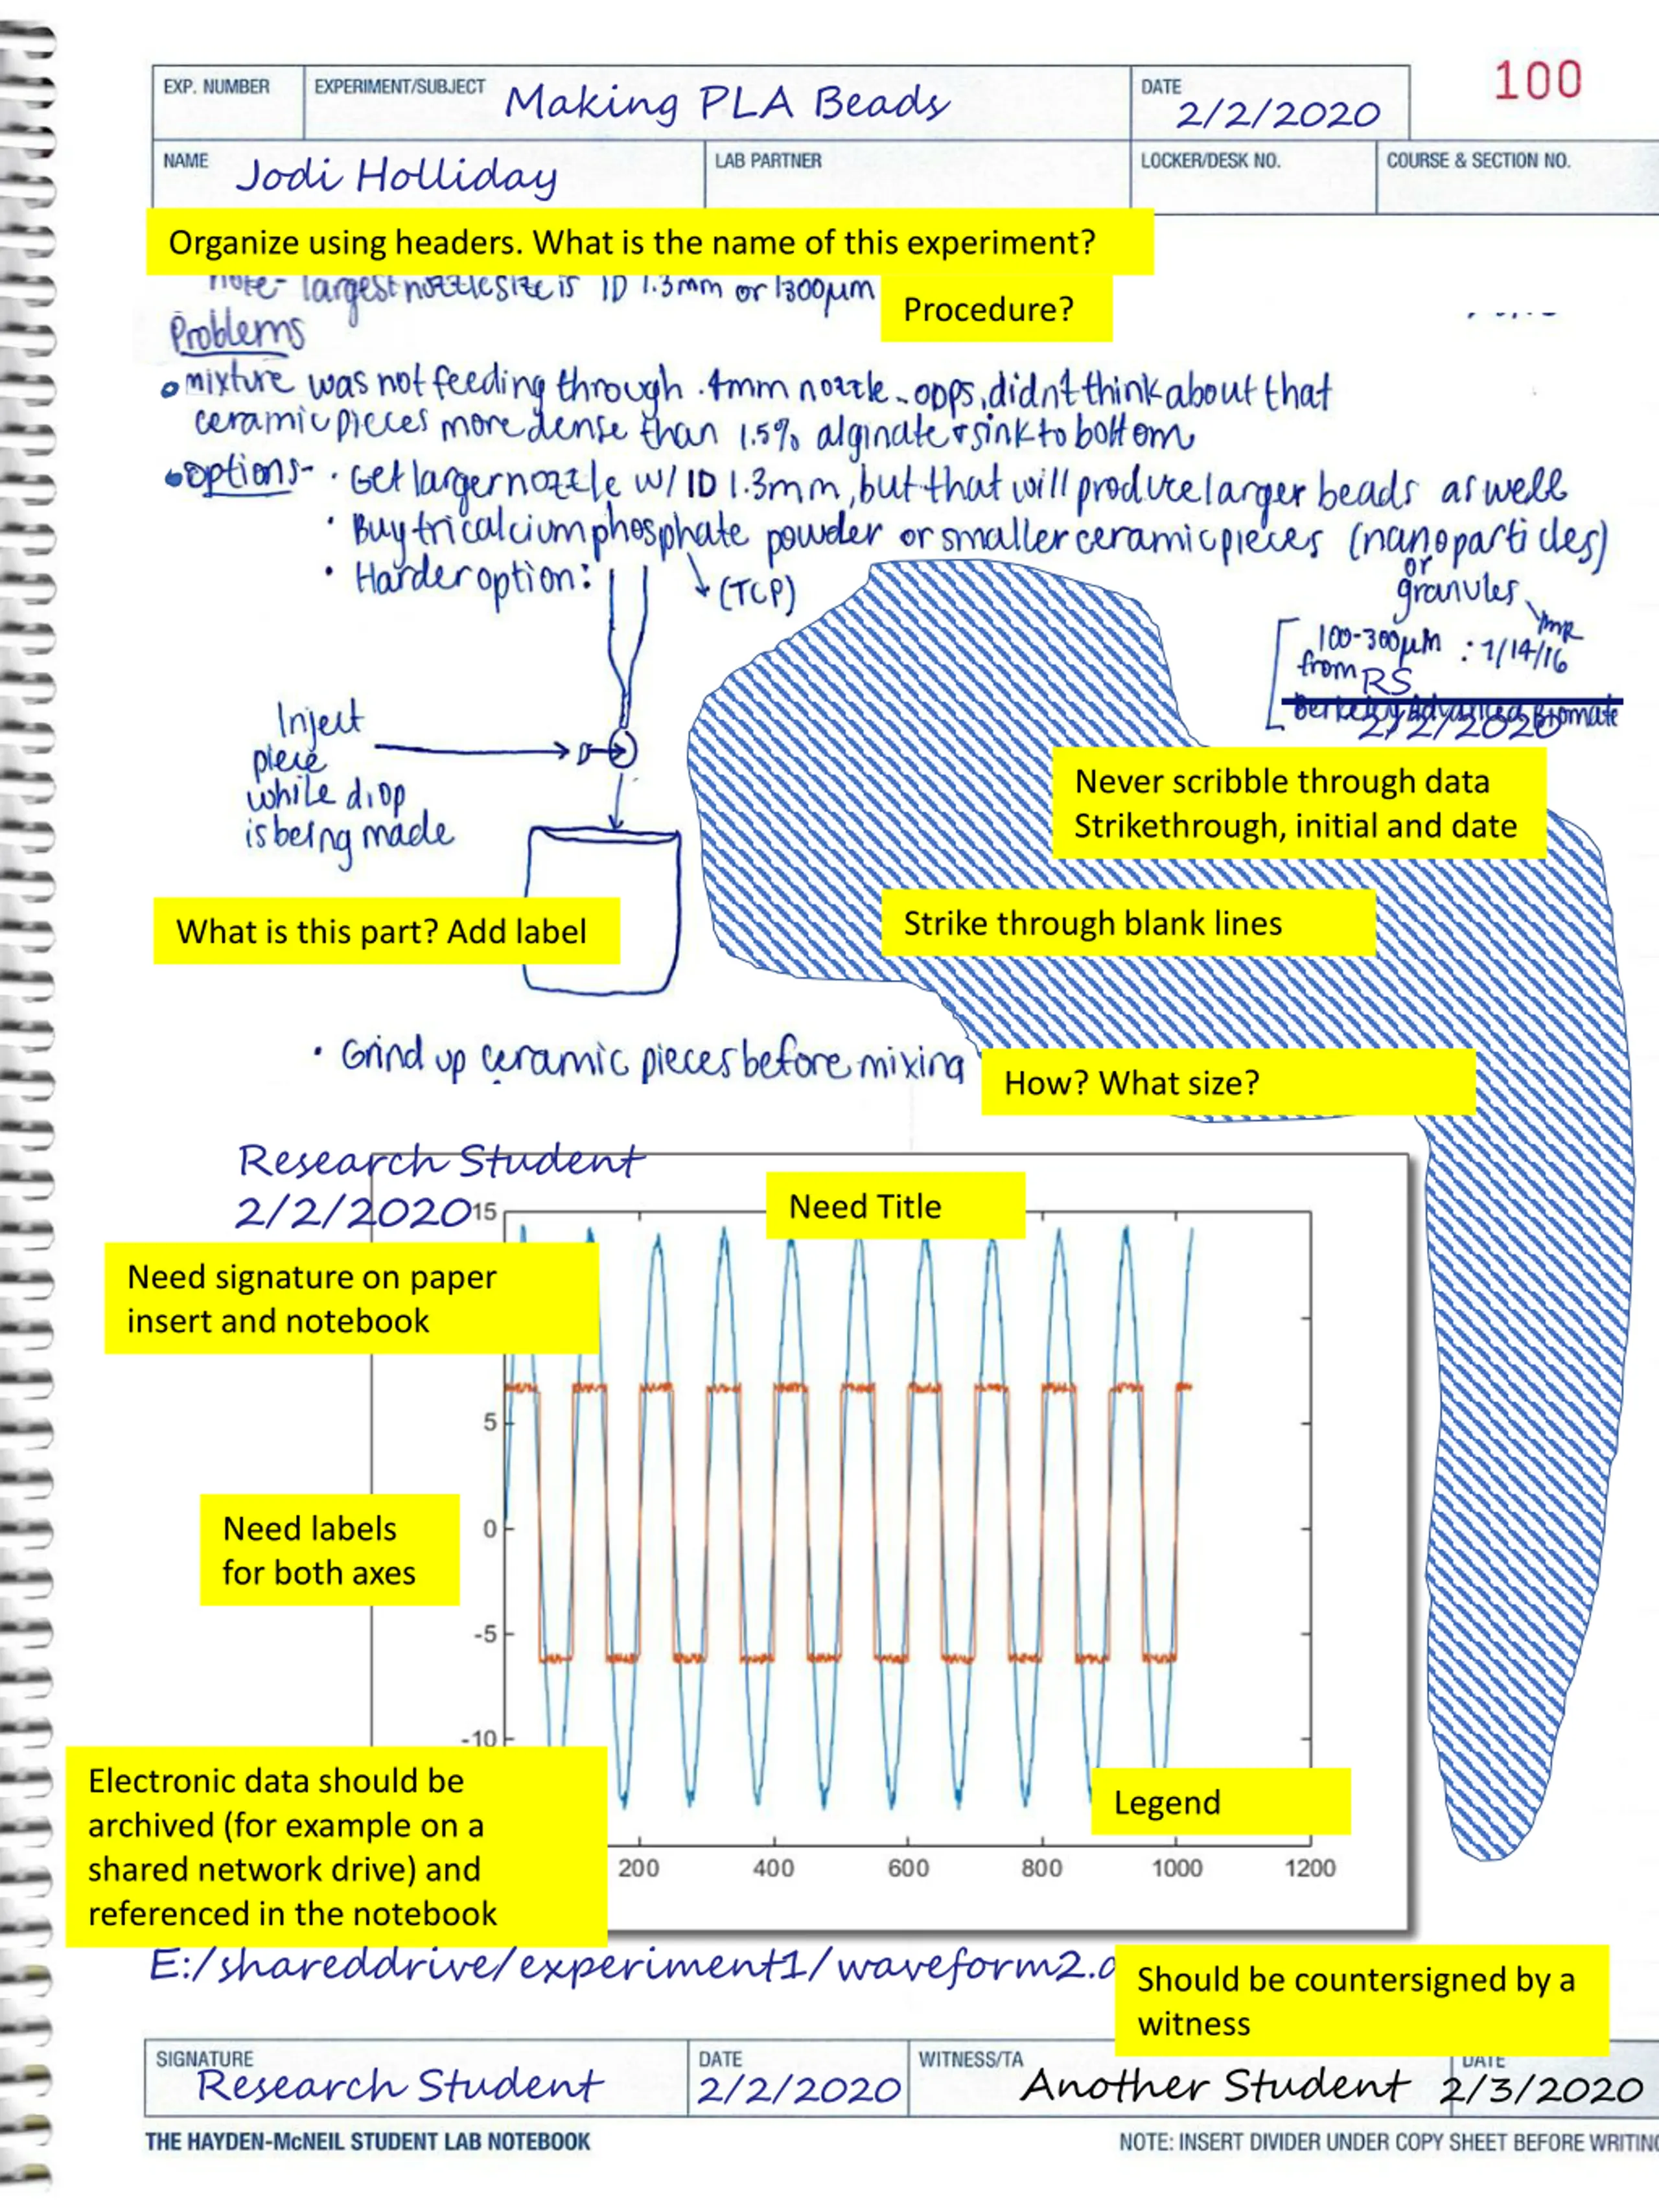 100
EXP. NUMBER
EXPERIMENT/SUBJECT Making PLA Beads
DATE 2/2/2020
NAME Jodi Holliday
LAB PARTNER
LOCKER/DESK NO.
COURSE & SECTION NO.
Organize using headers. What is the name of this experiment?
note- largest nozzle size is ID 1.3mm or 1300µm
Procedure?
Problems
mixture was not feeding through .4mm nozzle - opps, didn't think about that
ceramic pieces more dense than 1.5% alginate & sink to bottom
options- · Get larger nozzle w/ ID 1.3mm, but that will produce larger beads as well
· Buy tricalcium phosphate powder or smaller ceramic pieces (nanoparticles)
· Harder option:
(TCP)
or
granules
100-300µm : 7/14/16
from RS
2/2/2020
Inject
piece
while drop
is being made
Never scribble through data
Strikethrough, initial and date
Strike through blank lines
What is this part? Add label
· Grind up ceramic pieces before mixing
How? What size?
Research Student
2/2/2020
Need Title
15
Need signature on paper
insert and notebook
5
0
Need labels
for both axes
-5
-10
Electronic data should be
archived (for example on a
shared network drive) and
referenced in the notebook
Legend
200 400 600 800 1000 1200
E:/shareddrive/experiment1/waveform2.
Should be countersigned by a
witness
SIGNATURE Research Student
DATE 2/2/2020
WITNESS/TA Another Student
DATE 2/3/2020
THE HAYDEN-McNEIL STUDENT LAB NOTEBOOK
NOTE: INSERT DIVIDER UNDER COPY SHEET BEFORE WRITING